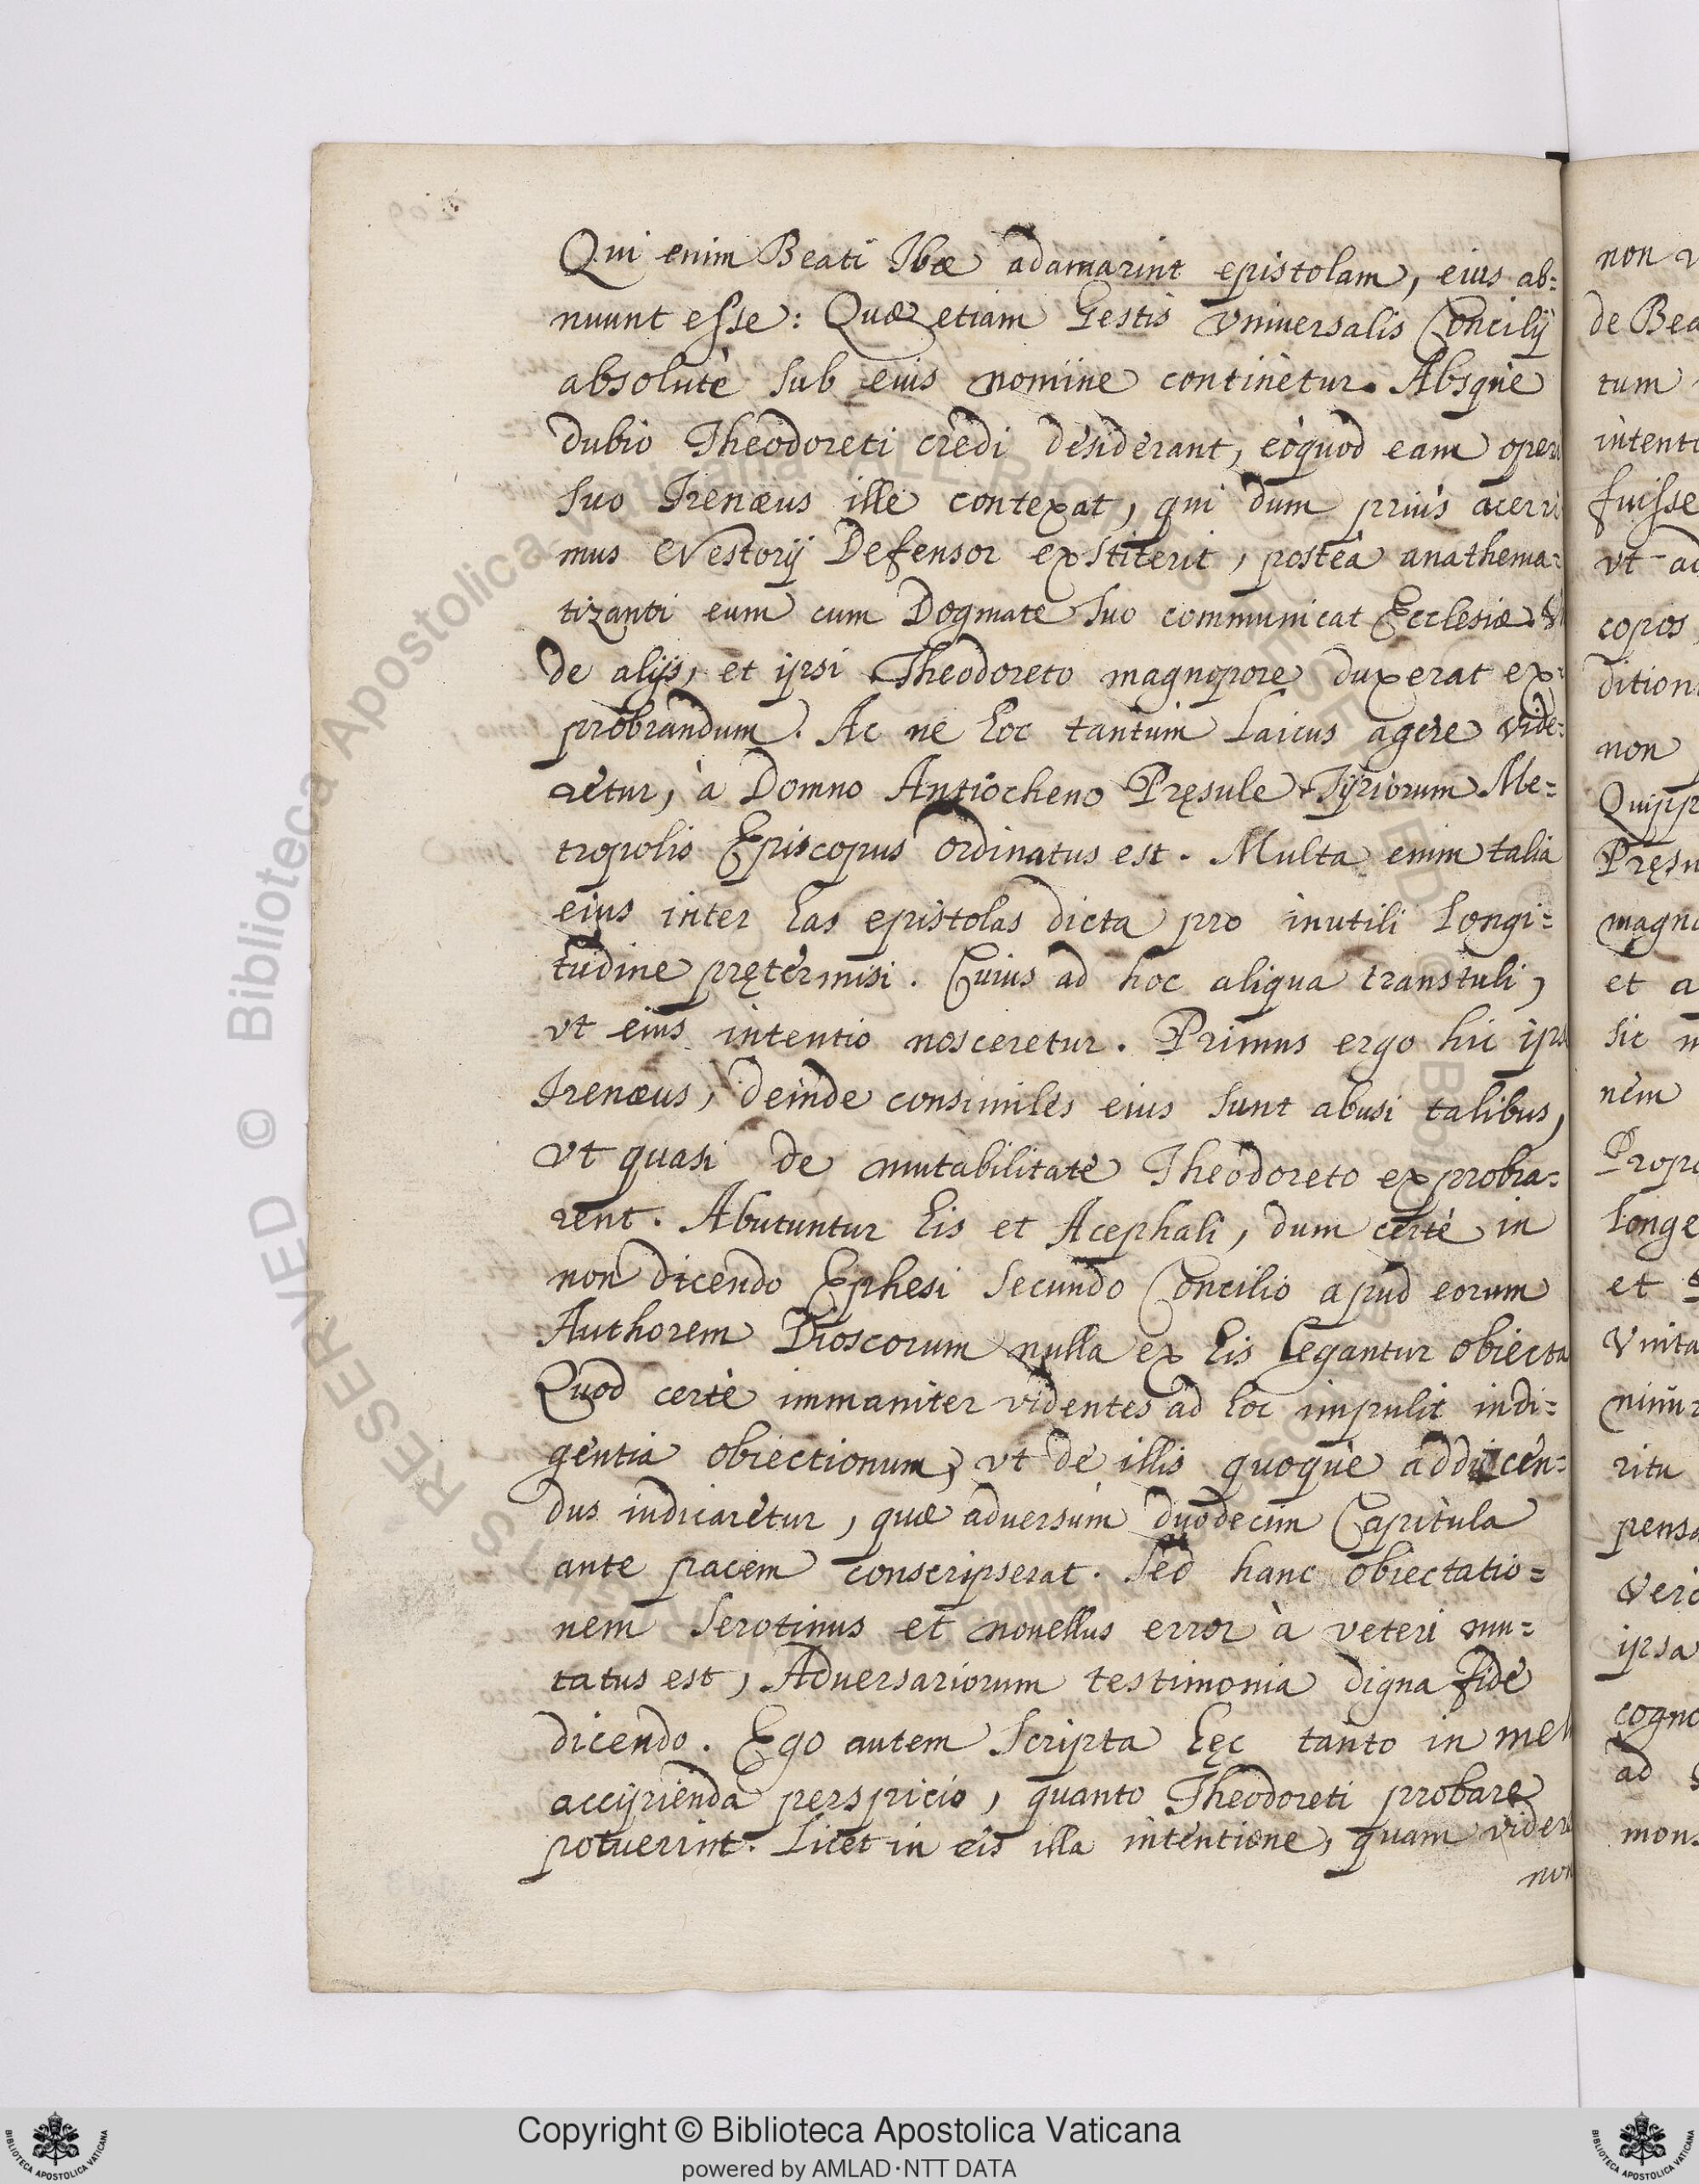 Qui enim Beati Ibæ adamarint epistolam, eius ab=
nuunt esse: Quæ etiam Gestis Vniuersalis Concilij
absolutè sub eius nomine continètur. Absque
dubio Theodoreti credi desiderant, eòquod eam operi
suo Irenæus ille contexat, qui dum priùs acerri
mus Nestorij Defensor exstiterit, posteà anathema=
tizanti eum cum Dogmate suo communicat Ecclesiæ.
de alijs, et ipsi Theodoreto magnopore duxerat ex=
probrandum. Ac ne hoc tantùm Laicus agere vide=
retur, à Domno Antiocheno Pręsule Tyriorum Me=
tropolis Episcopus ordinatus est. Multa enim talia
eius inter has epistolas dicta pro inutili longi=
tudine prętermisi. Cuius ad hoc aliqua transtuli,
vt eius intentio nosceretur. Primus ergo hic ipse
Irenæus, deinde consimiles eius sunt abusi talibus,
vt quasi de mutabilitate Theodoreto exprobra=
rent. Abutuntur his et Acephali, dum certè in
non dicendo Ephesi secundo Concilio apud eorum
Authorem Dioscorum nulla ex his legantur obiecta
Quod certè immaniter videntes ad hoc impulit indi=
gentia obiectionum, vt de illis quoque addicen=
dus iudicaretur, quæ aduersùm duodecim Capitula
ante pacem conscripserat. Sed hanc obiectatio=
nem serotinus et nouellus error à veteri mu=
tatus est, Aduersariorum testimonia digna fide
dicendo. Ego autem scripta hęc tanto in
accipienda perspicio, quanto Theodoreti probare
potuerint. Licet in eis illa intentione, quam
non
non
de Bea
tum
intenti
fuisse
vt ad
copos,
dition
non
Quipp
Pręsu
magna
et a
sic
nem
Propo
longe
et
Vnita
ninur
ritu
pensa
verò
ipsa
cogno
ad
mons
© Biblioteca Apostolica Vaticana ALL RIGHTS RESERVED
Copyright © Biblioteca Apostolica Vaticana
powered by AMLAD·NTT DATA
BIBLIOTECA APOSTOLICA VATICANA
BIBLIOTECA APOSTOLICA VATICANA